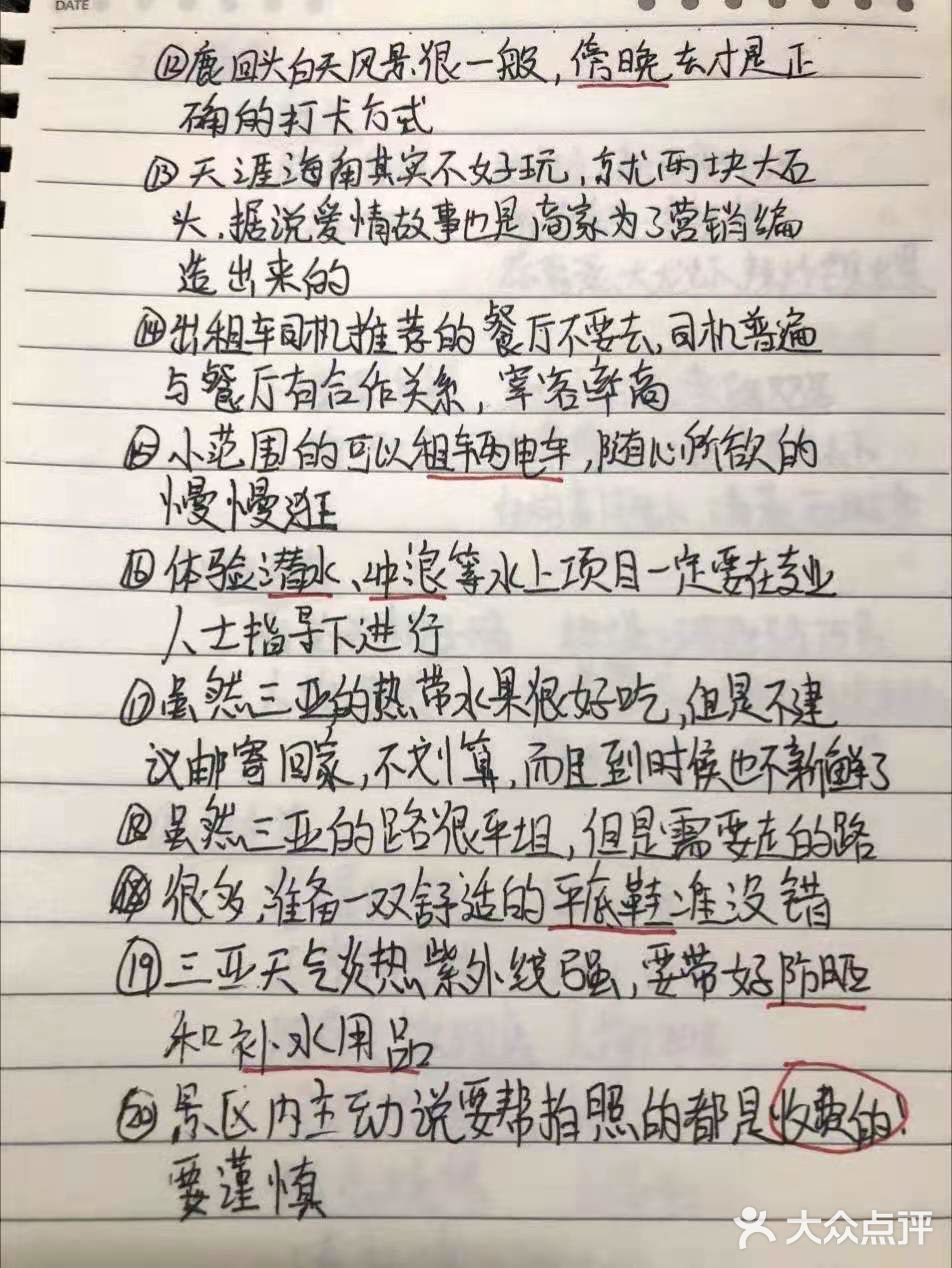 DATE
⑫鹿回头白天风景很一般，傍晚去才是正
确的打卡方式
⑬天涯海南其实不好玩，就两块大石
头，据说爱情故事也是商家为了营销编
造出来的
⑭出租车司机推荐的餐厅不要去，司机普遍
与餐厅有合作关系，宰客率高
⑮小范围的可以租辆电车，随心所欲的
慢慢逛
⑯体验潜水、冲浪等水上项目一定要在专业
人士指导下进行
⑰虽然三亚的热带水果很好吃，但是不建
议邮寄回家，不划算，而且到时候也不新鲜了
⑱虽然三亚的路很平坦，但是需要走的路
很多，准备一双舒适的平底鞋准没错
⑲三亚天气炎热紫外线强，要带好防晒
和补水用品
⑳景区内主动说要帮拍照的都是收费的！
要谨慎
大众点评